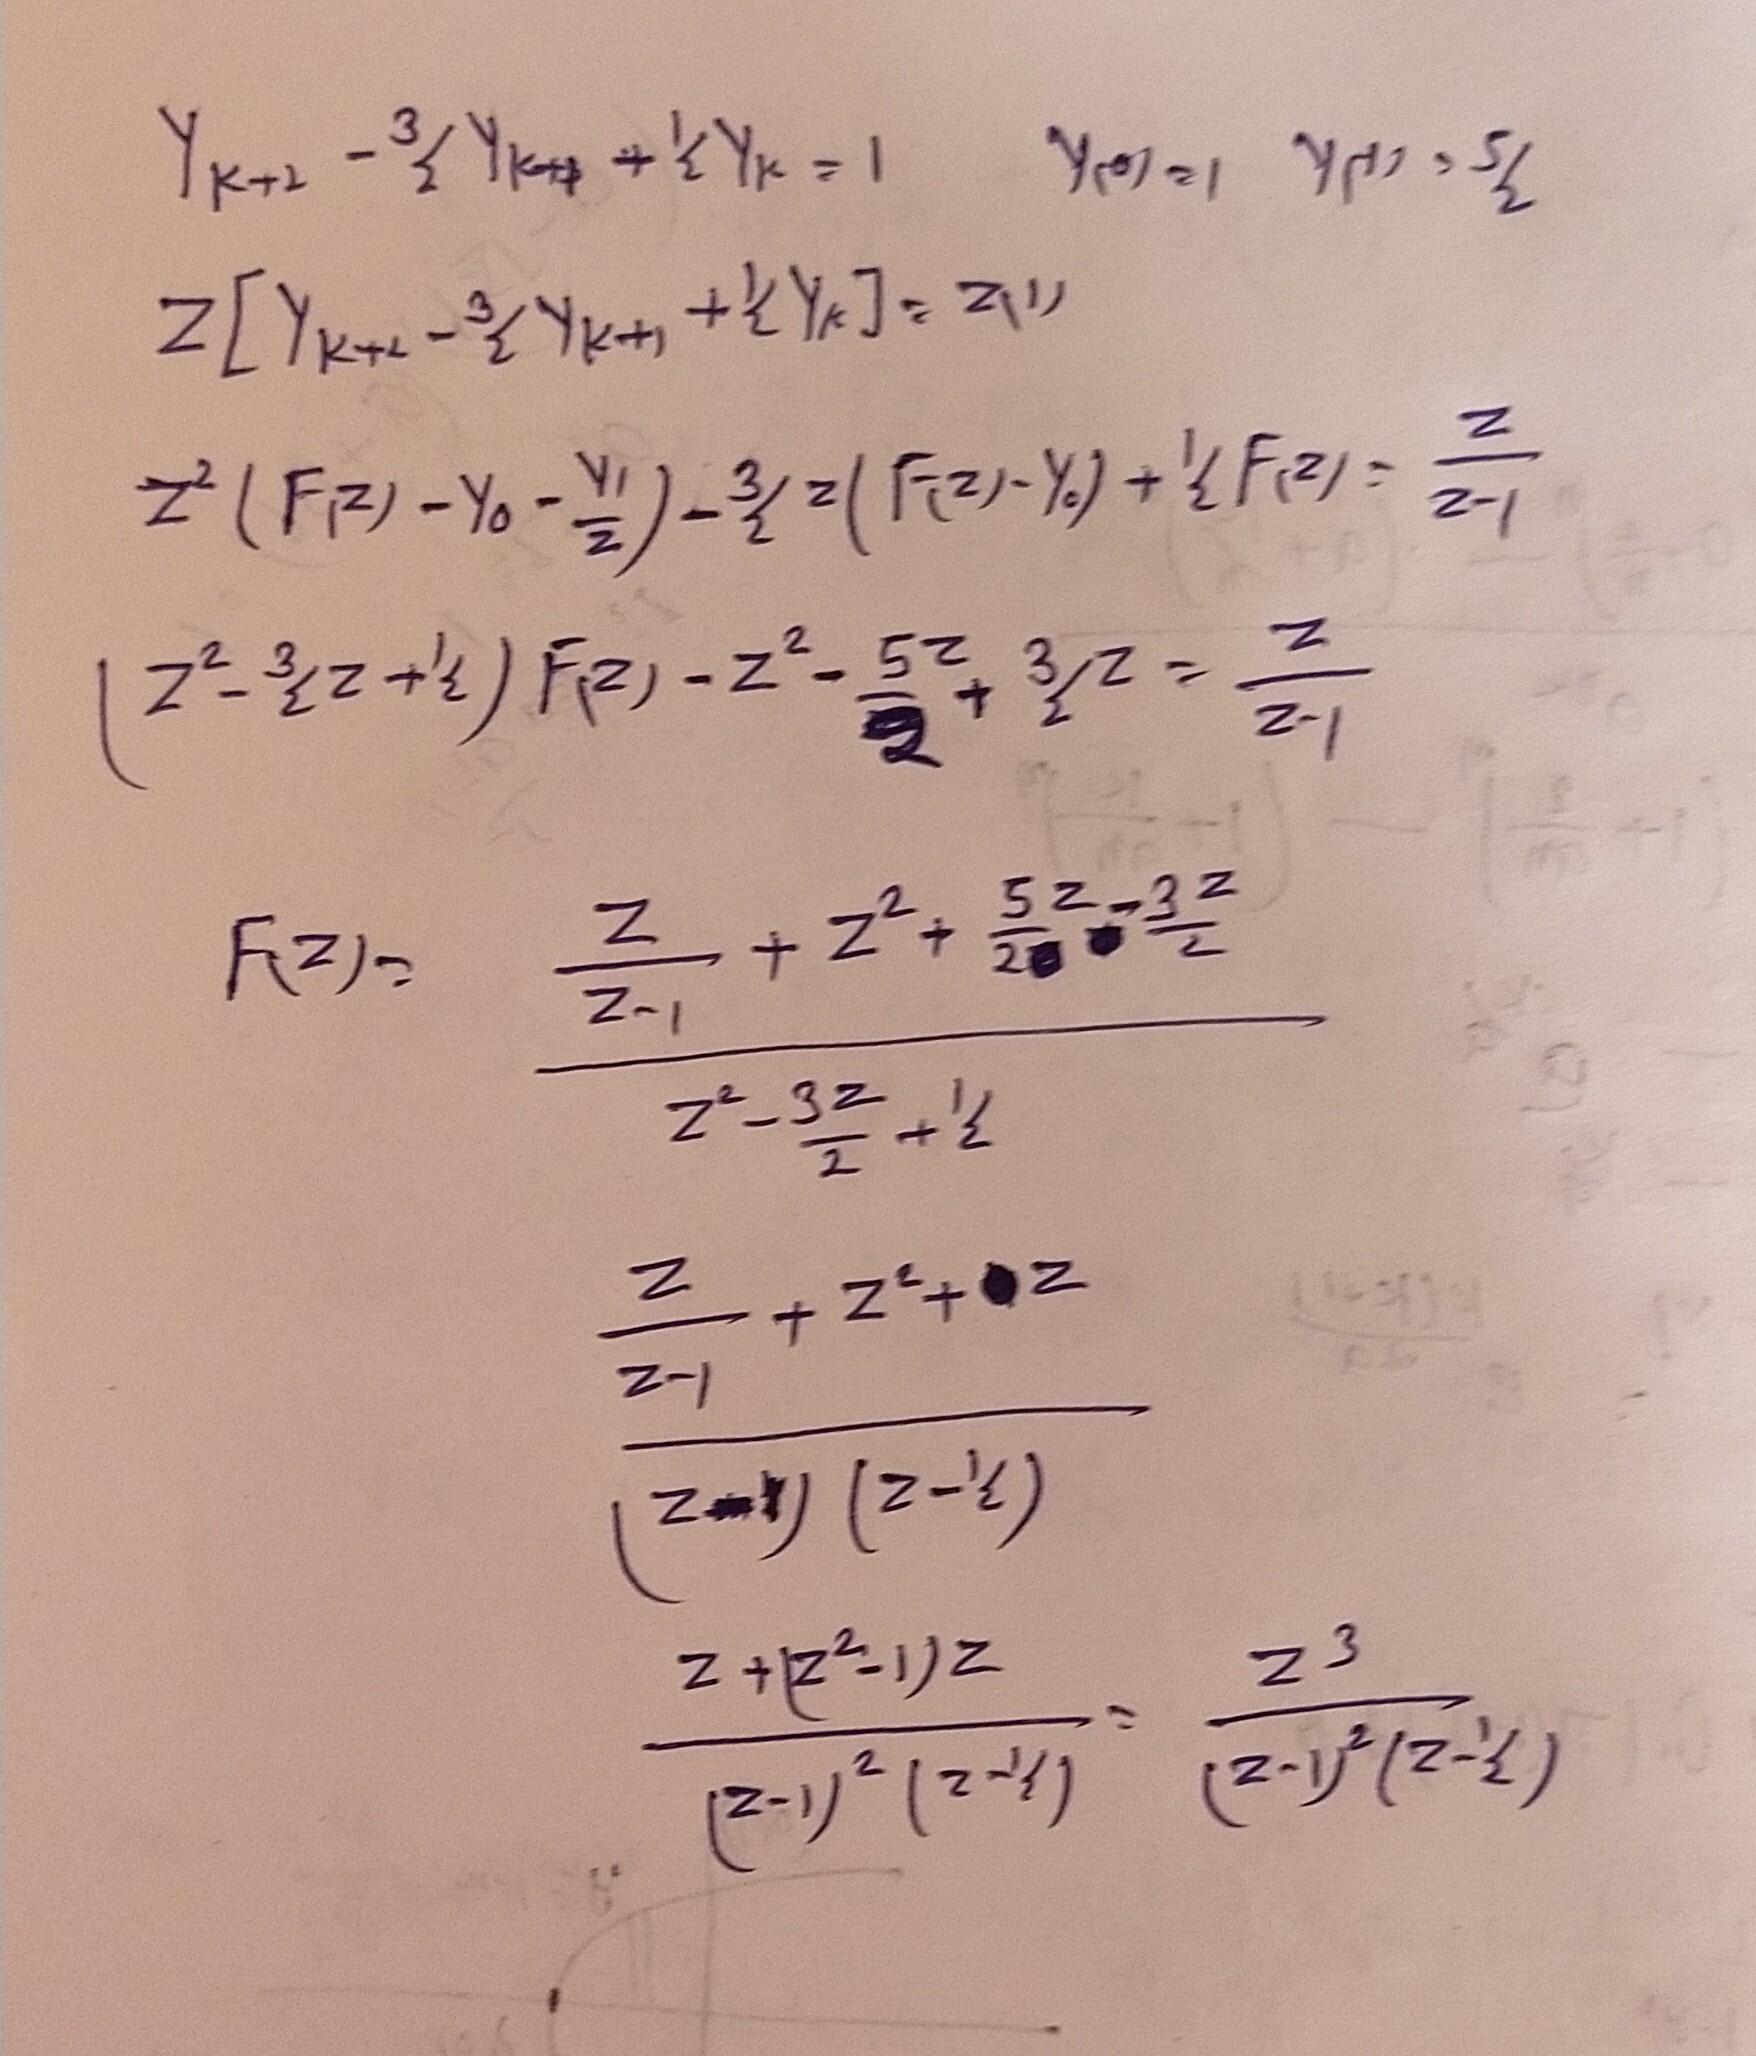 Y_{k+2} - 3/2 Y_{k+1} + 1/2 Y_k = 1 y(0) = 1 y(1) = 5/2
Z[Y_{k+2} - 3/2 Y_{k+1} + 1/2 Y_k] = Z(1)
z²(F(z) - y₀ - y₁/z) - 3/2 z(F(z) - y₀) + 1/2 F(z) = z/(z-1)
(z² - 3/2 z + 1/2) F(z) - z² - 5z/2 + 3/2 z = z/(z-1)
F(z) = (z/(z-1) + z² + 5z/2 - 3z/2)/(z² - 3z/2 + 1/2)
(z/(z-1) + z² + z)/((z-1)(z-1/2))
(z + (z²-1)z)/((z-1)²(z-1/2)) = z³/((z-1)²(z-1/2))